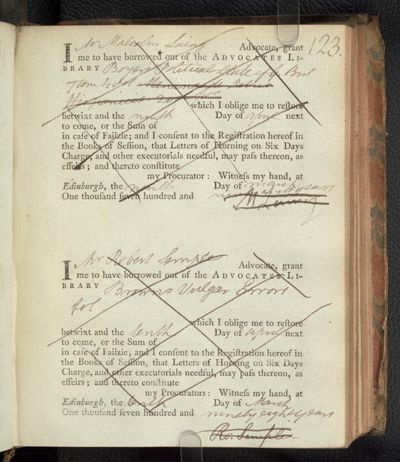 123.
I Mr Malcolm Laing Advocate, grant
me to have borrowed out of the ADVOCATES LI-
BRARY Boyers Political State of G. Brit
which I oblige me to restore
betwixt and the ninth Day of April next
to come, or the Sum of
in case of Failzie; and I consent to the Registration hereof in
the Books of Session, that Letters of Horning on Six Days
Charge, and other executorials needful, may pass thereon, as
effeirs; and thereto constitute
my Procurators: Witness my hand, at
Edinburgh, the ninth Day of March
One thousand seven hundred and ninety eight years
M. Laing
I Mr Robert Semple Advocate, grant
me to have borrowed out of the ADVOCATES LI-
BRARY Browns Vulgar Errors
fol
which I oblige me to restore
betwixt and the tenth Day of April next
to come, or the Sum of
in case of Failzie; and I consent to the Registration hereof in
the Books of Session, that Letters of Horning on Six Days
Charge, and other executorials needful, may pass thereon, as
effeirs; and thereto constitute
my Procurators: Witness my hand, at
Edinburgh, the tenth Day of March
One thousand seven hundred and ninety eight years
Ro: Semple